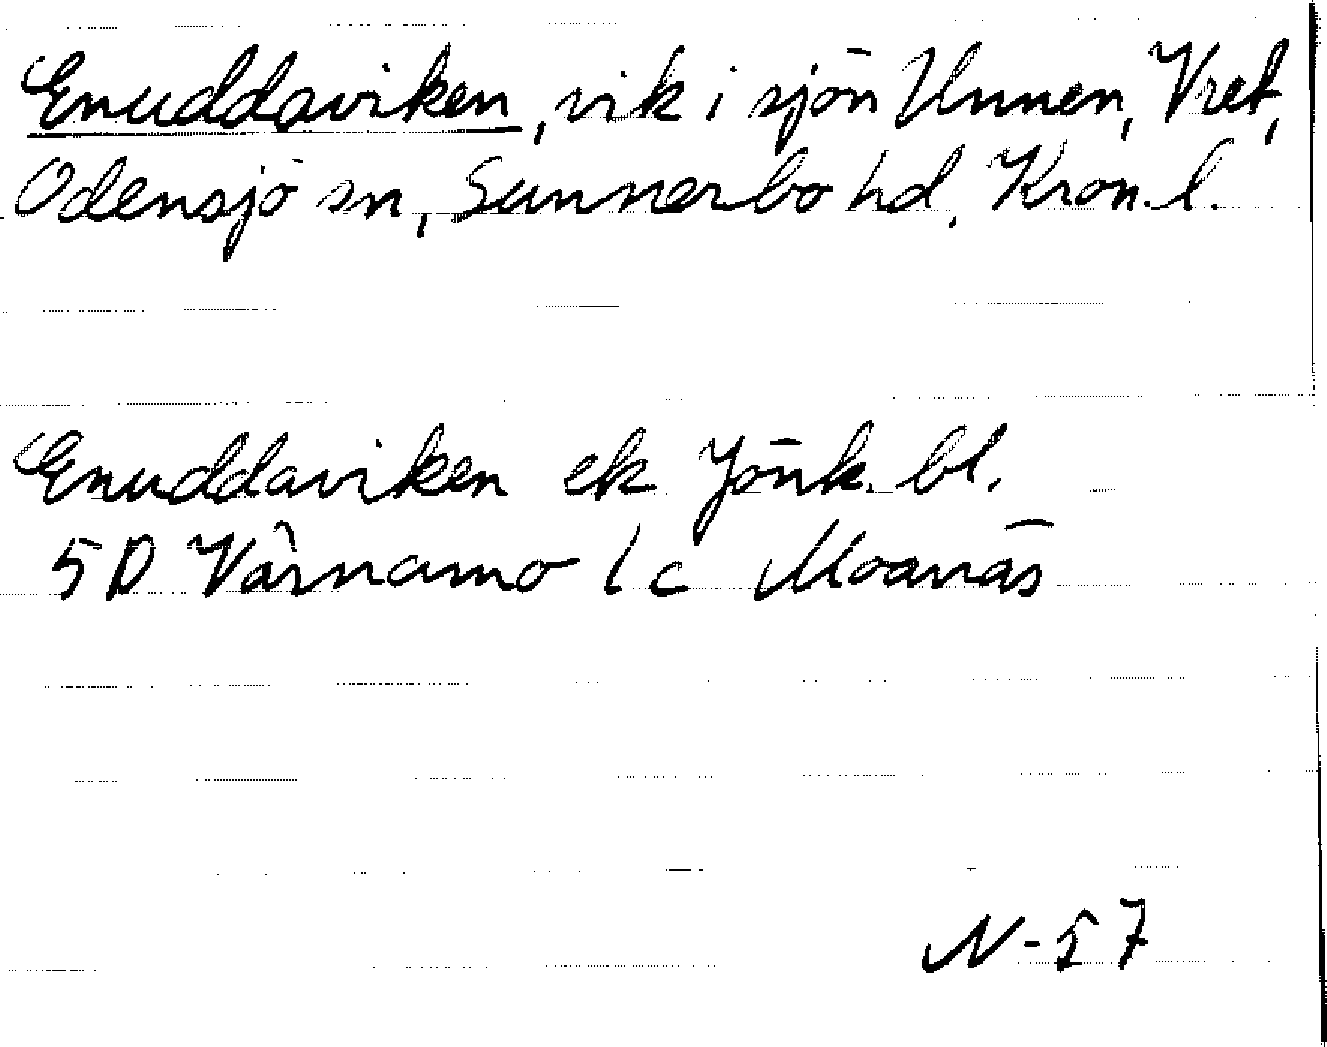 Enuddaviken, vik i sjön Unnen, Vret,
Odensjö sn, Sunnerbo hd, Kron. l.
Enuddaviken ek Jönk. bl.
5D Värnamo 1c Moanäs
N-57